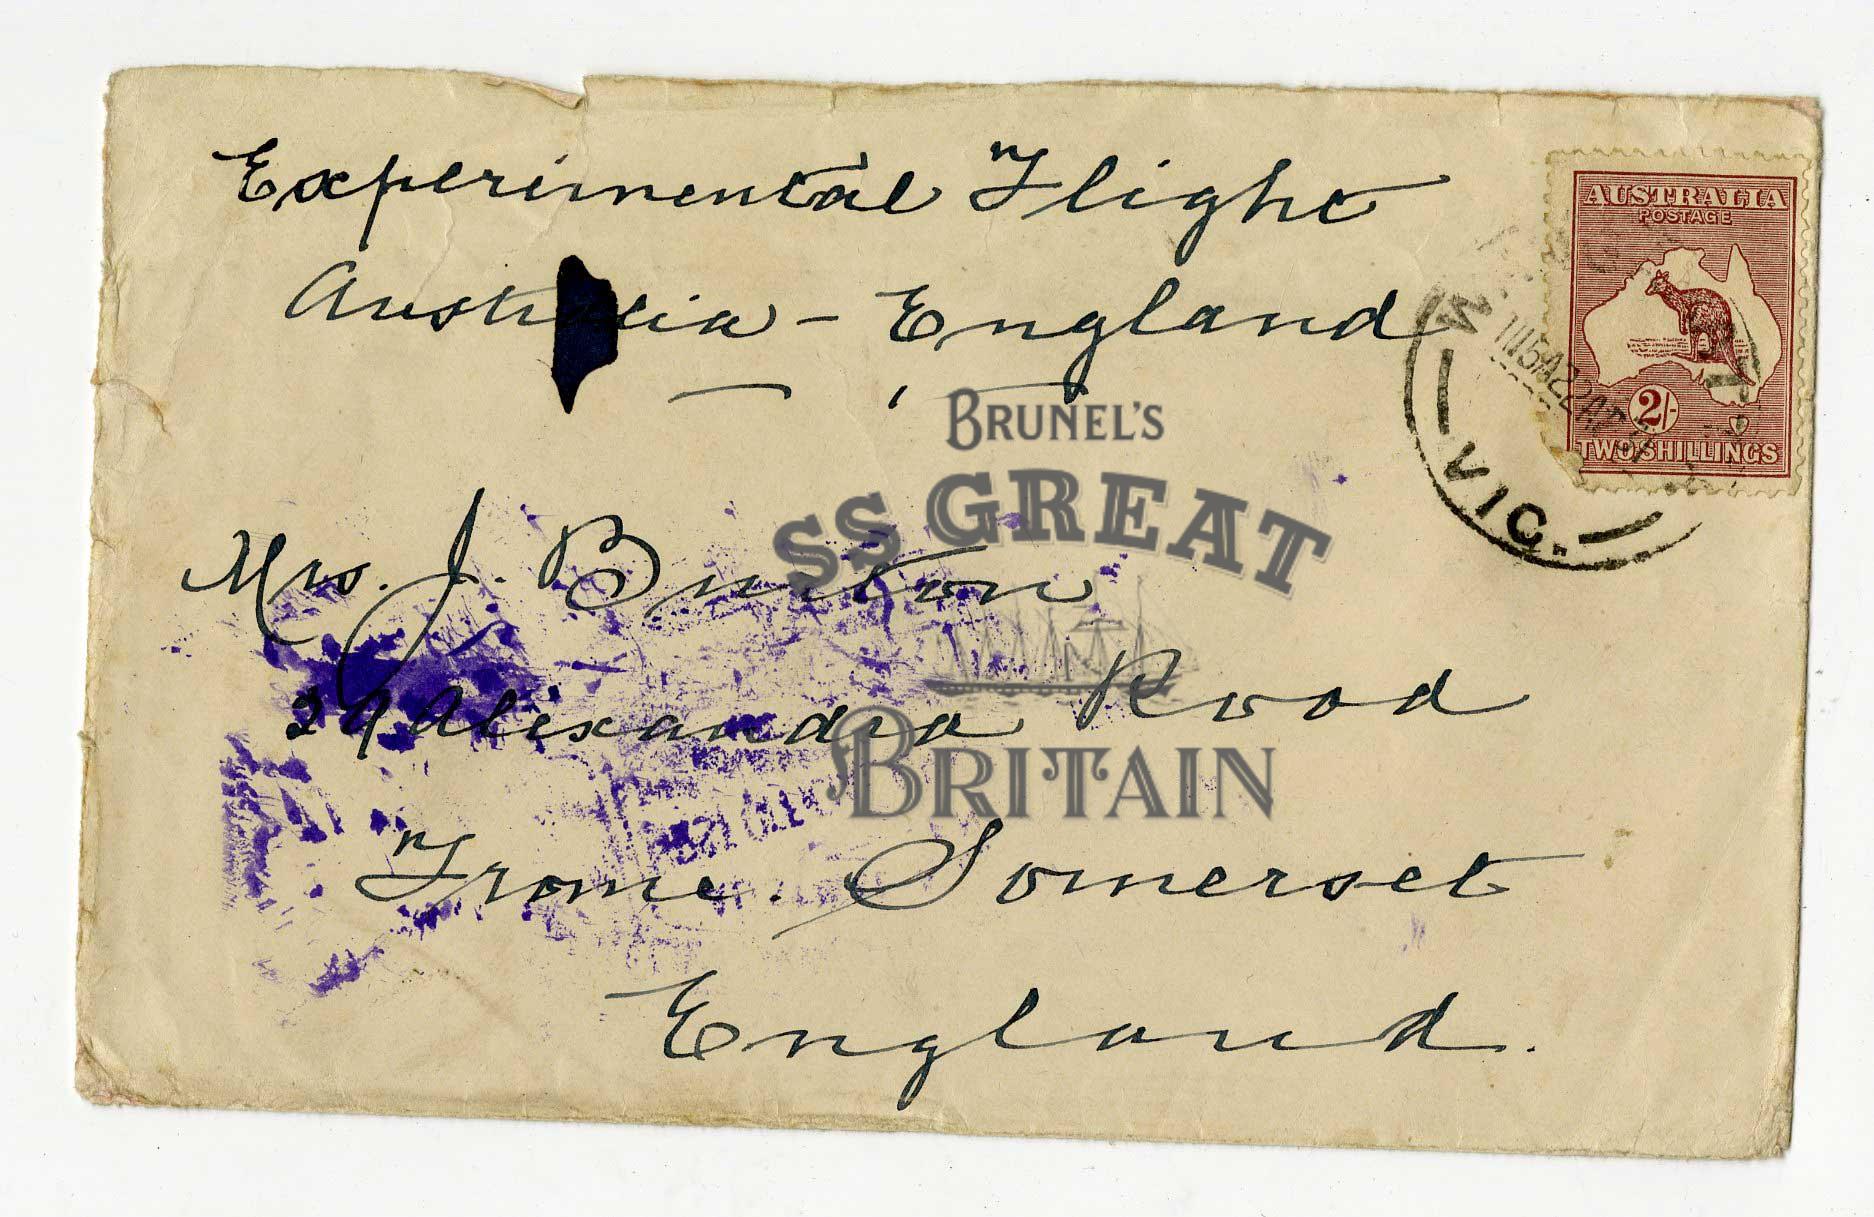 Experimental Flight
Australia - England
AUSTRALIA
POSTAGE
2/-
TWO SHILLINGS
VIC.
BRUNEL'S
SS GREAT
BRITAIN
Mrs. J. Burton
Alixandra Road
Frome. Somerset
England.